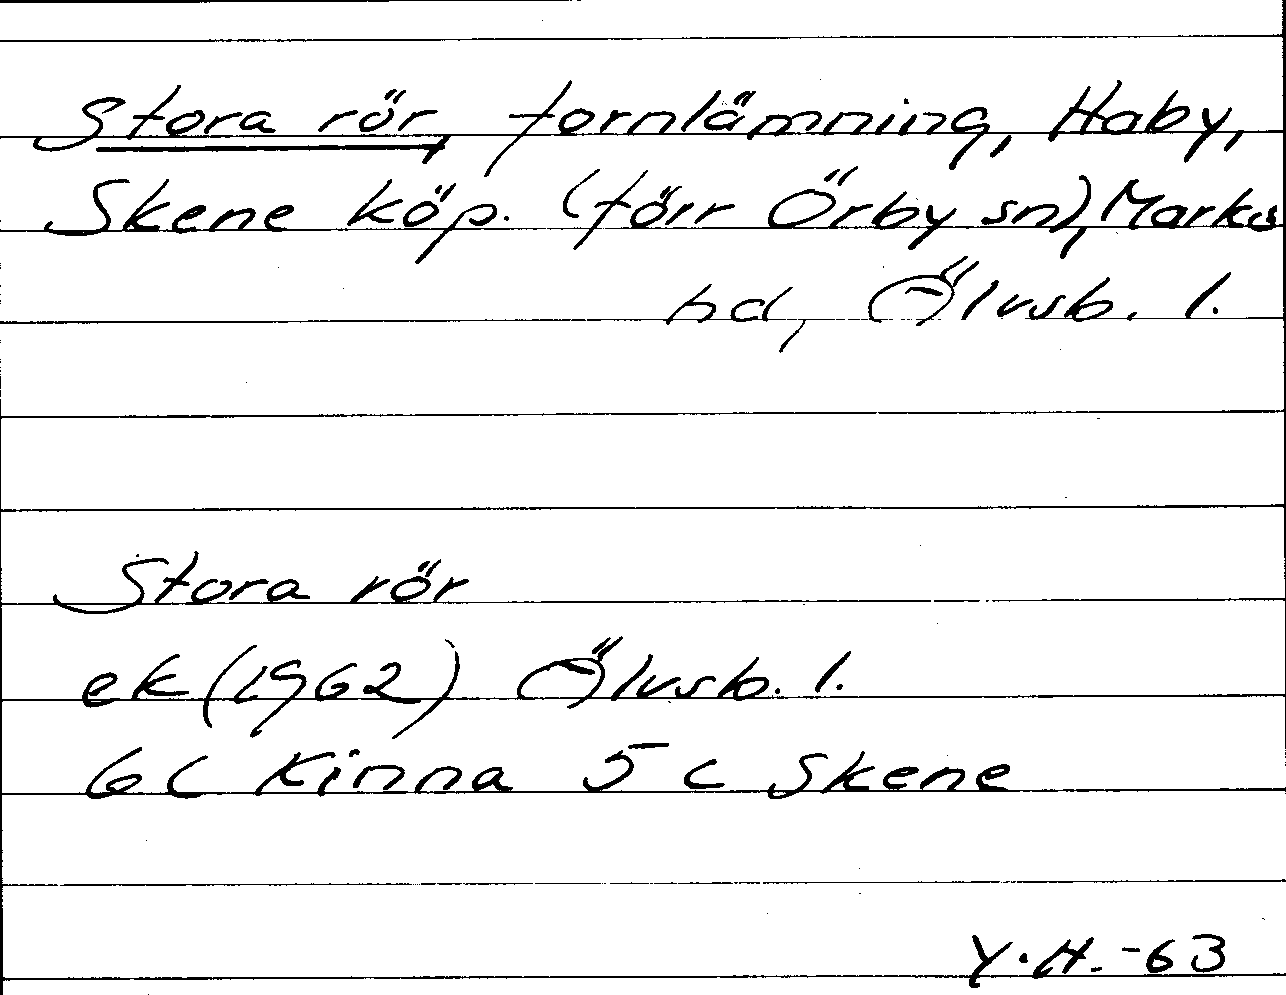 Stora rör, fornlämning, Haby,
Skene köp. (förr Örby sn), Marks
hd, Älvsb. l.
Stora rör
ek (1962) Älvsb. l.
6C Kinna 5 c Skene
Y.H. -63